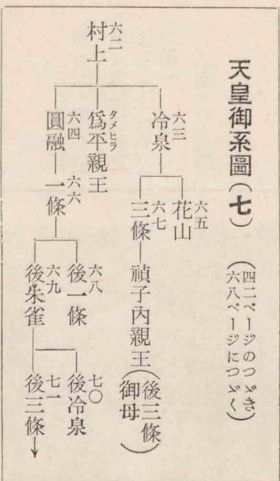 天皇御系圖(七)
(四二ページのつゞき
六八ページにつゞく)
六二
村上
六三
冷泉
六五
花山
六七
三條
禎子内親王(後三條御母)
タメヒラ
爲平親王
六四
圓融
六六
一條
六八
後一條
六九
後朱雀
七〇
後冷泉
七一
後三條